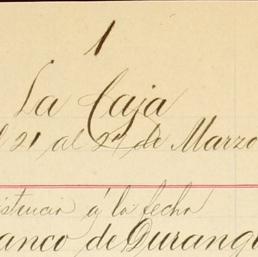 1
La Caja
21 al 27 de Marzo
istencia á la fecha
anco de Durang